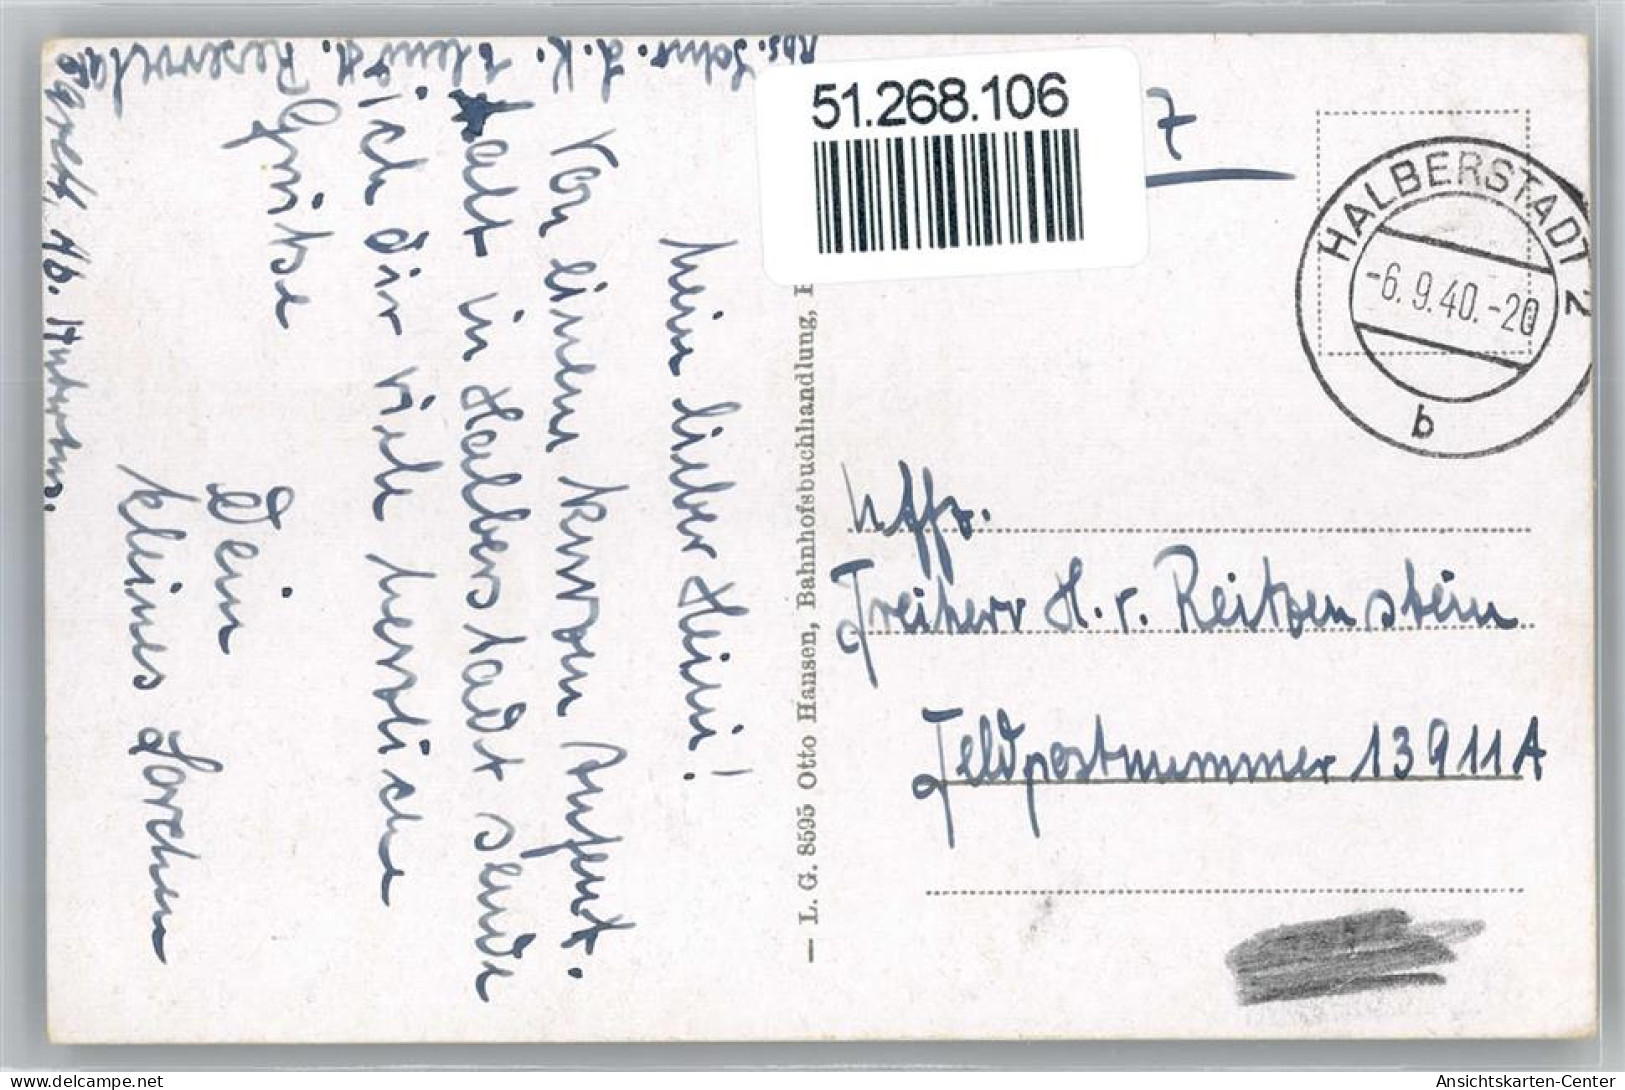 51.268.106
7
HALBERSTADT 2
-6.9.40.-20
b
Mein lieber Heini!
Von einem kurzen Aufent-
halt in Halberstadt sende
ich dir viele herzliche
Grüße
Dein
kleines Lorchen
Abs. Schw. L. K.
Reservelaz
Uffz.
Freiherr H. v. Reitzenstein
Feldpostnummer 13911A
— L. G. 8595 Otto Hansen, Bahnhofsbuchhandlung,
Ansichtskarten-Center